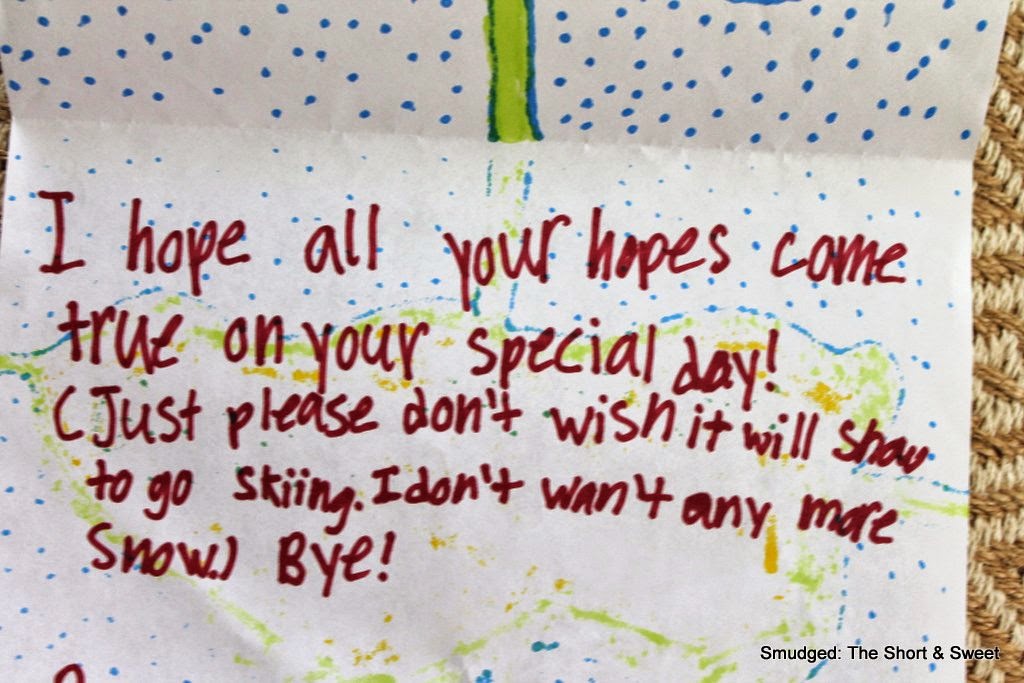 I hope all your hopes come
true on your special day!
(Just please don't wish it will snow
to go skiing. I don't want any more
snow.) Bye!
Smudged: The Short & Sweet